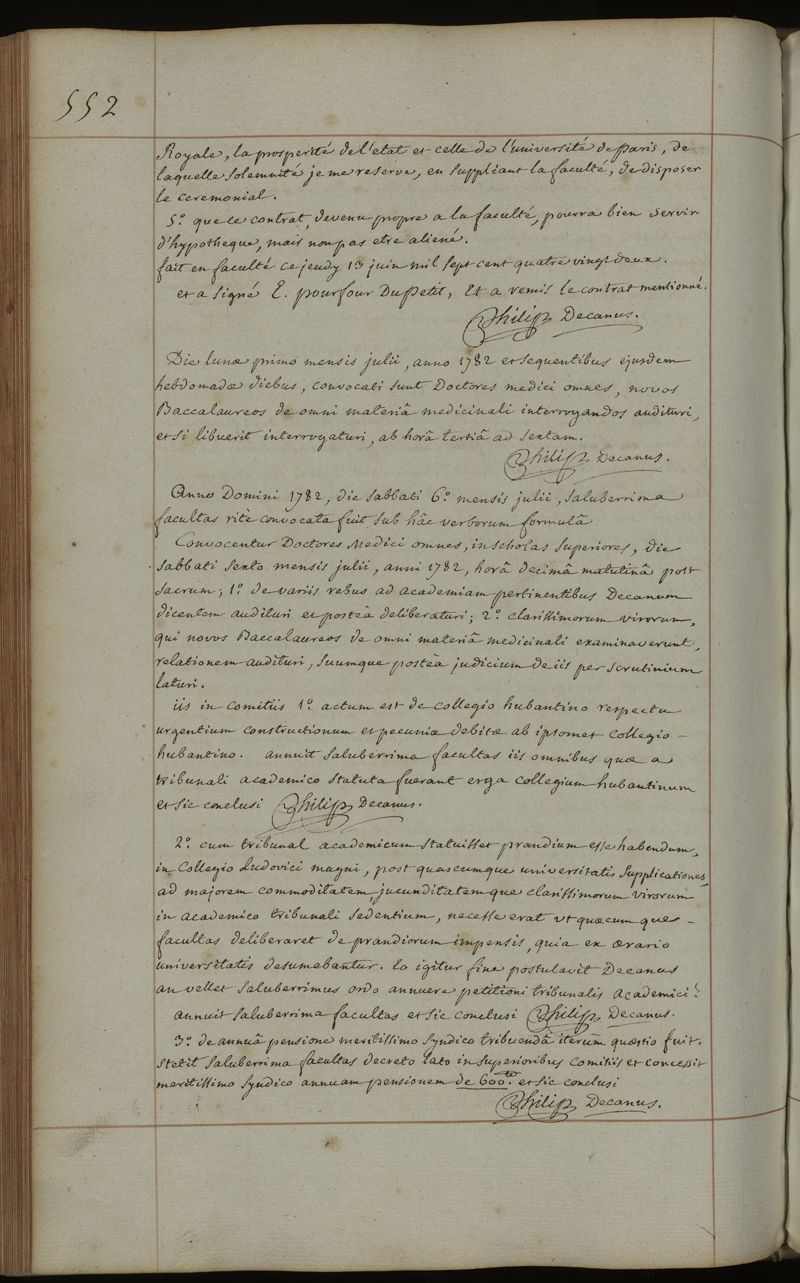 552
Royale, la prosperité de l'etat et celle de l'université de paris, de
laquelle solemnité je me reserve, en suppliant la faculté, de disposer
le ceremonial.
5.° que le contrat, devenu propre a la faculté, pourra bien servir
d'hypotheque, mais non pas etre aliené.
fait en faculté ce jeudy 13 juin mil sept cent quatre vingt deux.
et a signé E. pourfour DuPetit, Et a remis le contrat mentionné.
Philip Decanus.
Die lunæ primo mensis julii, anno 1782 et sequentibus ejusdem
hebdomadæ diebus, convocati sunt Doctores medici omnes, novos
Baccalaureos de omni materiâ medicinali interrogandos audituri,
et si libuerit interrogaturi, ab horâ tertiâ ad sextam.
Philip Decanus.
Anno Domini 1782, die sabbati 6.° mensis julii, saluberrima
facultas rite convocata fuit sub hâc verborum formulâ
Convocentur Doctores Medici omnes, in scholas superiores, die
sabbati sexto mensis julii, anni 1782, horâ decimâ matutinâ post
sacrum; 1.° de variis rebus ad academiam pertinentibus Decanum
dicentem audituri et posteà deliberaturi; 2.° clarissimorum virorum,
qui novos Baccalaureos de omni materiâ medicinali examinaverunt,
relationem audituri, suumque posteà judicium de iis per scrutinium
laturi.
iis in comitiis 1.° actum est de collegio hubantino respectu
urgentium constructionum et pecuniæ debitæ ab ipsomet collegio -
hubantino. annuit saluberrima facultas iis omnibus quæ a
tribunali academico statuta fuerant erga collegium hubantinum
et sic conclusi Philip Decanus.
2.° cum tribunal academicum statuisset prandium esse habendum,
in collegio Ludovici magni, post quascumque universitatis supplicationes,
ad majorem commoditatem jucunditatemque clarissimorum virorum
in academico tribunali sedentium, necesse erat ut quæcumque -
facultas deliberaret de prandiorum impensis, quia ex ærario
universitatis desumebantur. Eo igitur fine postulavit Decanus
an vellet saluberrimus ordo annuere petitioni tribunalis academici?
annuit saluberrima facultas et sic conclusi Philip Decanus.
3.° de annuâ pensione meritissimo syndico tribuendâ iterùm quæstio fuit.
stetit saluberrima facultas decreto lato in superioribus comitiis et concessit
meritissimo syndico annuam pensionem de 600.<sup>tt</sup> et sic conclusi
Philip Decanus.